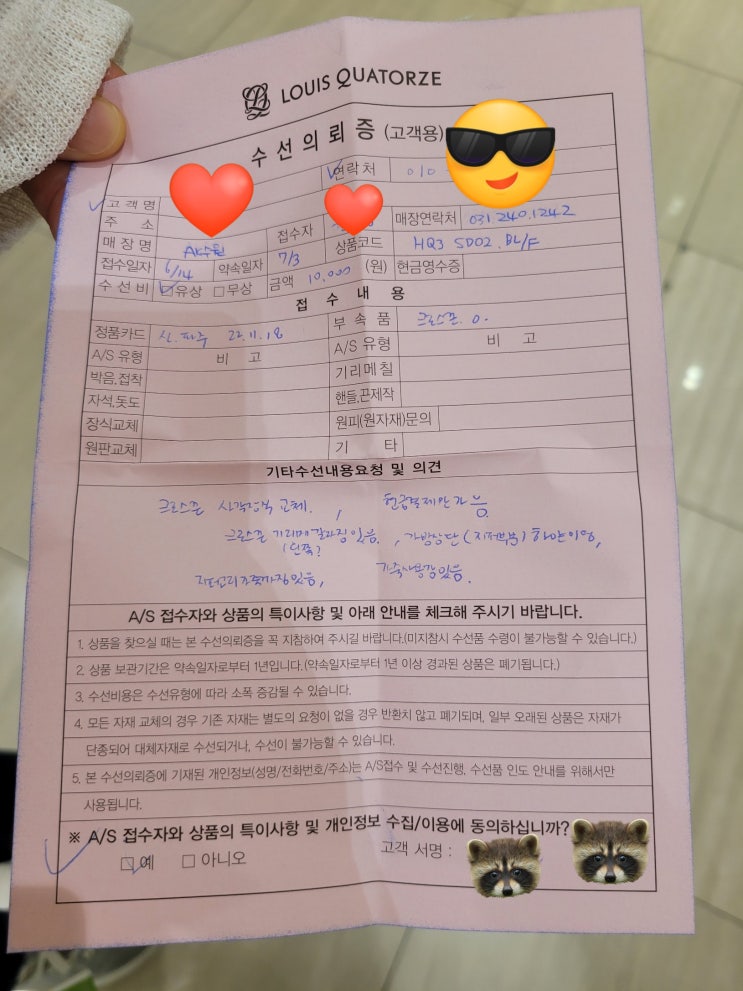 LOUIS QUATORZE
수선의뢰증 (고객용)
고객명 연락처 010
주 소 접수자 매장연락처 031 240.1242
매장명 AK수원 상품코드 HQ3 SD02. BL/F
접수일자 6/14 약속일자 7/3 금액 10,000 (원) 현금영수증
수선비 유상 무상
접 수 내 용
정품카드 신.파주 22.11.18 부속품 크로스끈 o.
A/S 유형 비 고 A/S 유형 비 고
박음,접착 기리메칠
자석,돗도 핸들,끈제작
장식교체 원피(원자재)문의
원판교체 기 타
기타수선내용요청 및 의견
크로스끈 교체. ,
크로스끈 기리메 갈라짐있음. , 가방상단(지퍼부분)
있음, 가죽사용감있음.
A/S 접수자와 상품의 특이사항 및 아래 안내를 체크해 주시기 바랍니다.
1. 상품을 찾으실 때는 본 수선의뢰증을 꼭 지참하여 주시길 바랍니다.(미지참시 수선품 수령이 불가능할 수 있습니다.)
2. 상품 보관기간은 약속일자로부터 1년입니다.(약속일자로부터 1년 이상 경과된 상품은 폐기됩니다.)
3. 수선비용은 수선유형에 따라 소폭 증감될 수 있습니다.
4. 모든 자재 교체의 경우 기존 자재는 별도의 요청이 없을 경우 반환치 않고 폐기되며, 일부 오래된 상품은 자재가
단종되어 대체자재로 수선되거나, 수선이 불가능할 수 있습니다.
5. 본 수선의뢰증에 기재된 개인정보(성명/전화번호/주소)는 A/S접수 및 수선진행, 수선품 인도 안내를 위해서만
사용됩니다.
※ A/S 접수자와 상품의 특이사항 및 개인정보 수집/이용에 동의하십니까?
예 아니오 고객 서명 :